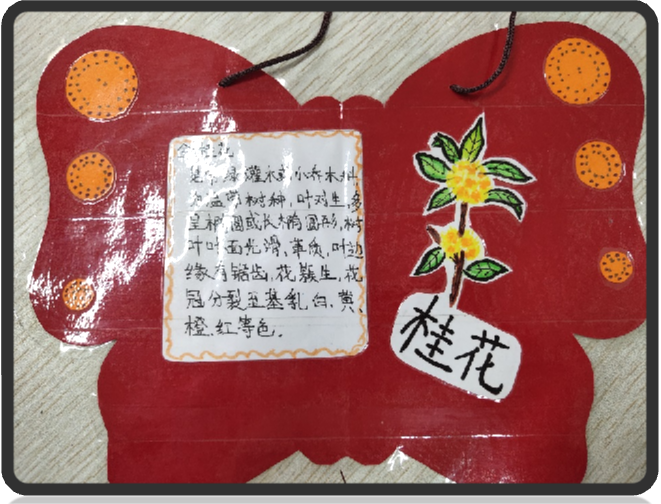 桂花
是常绿灌木或小乔木
温带树种,叶对生,多
呈椭圆或长椭圆形,树
叶叶面光滑,革质,叶边
缘有锯齿,花簇生,花
冠分裂至基乳白、黄、
橙、红等色。
桂花